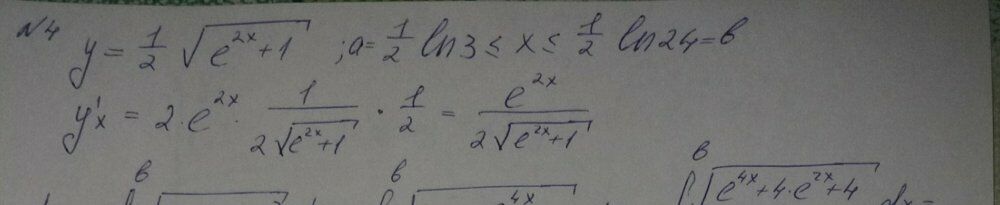 №4 y = 1/2 √(e^(2x) + 1) ; a = 1/2 ln3 ≤ x ≤ 1/2 ln24 = b
y'x = 2·e^(2x) · 1/(2√(e^(2x)+1)) · 1/2 = e^(2x)/(2√(e^(2x)+1))
b b b √(e^(4x)+4·e^(2x)+4) dx =